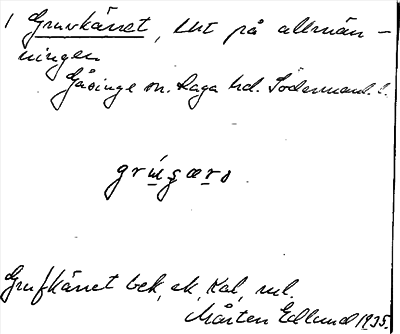 1 Gruvkärret, LHT på allmän-
ningen
Gåsinge sn. Daga hd. Södermanl. l.
Grufkärret bek, ek, Kal,
Mårten Edlund 1935.